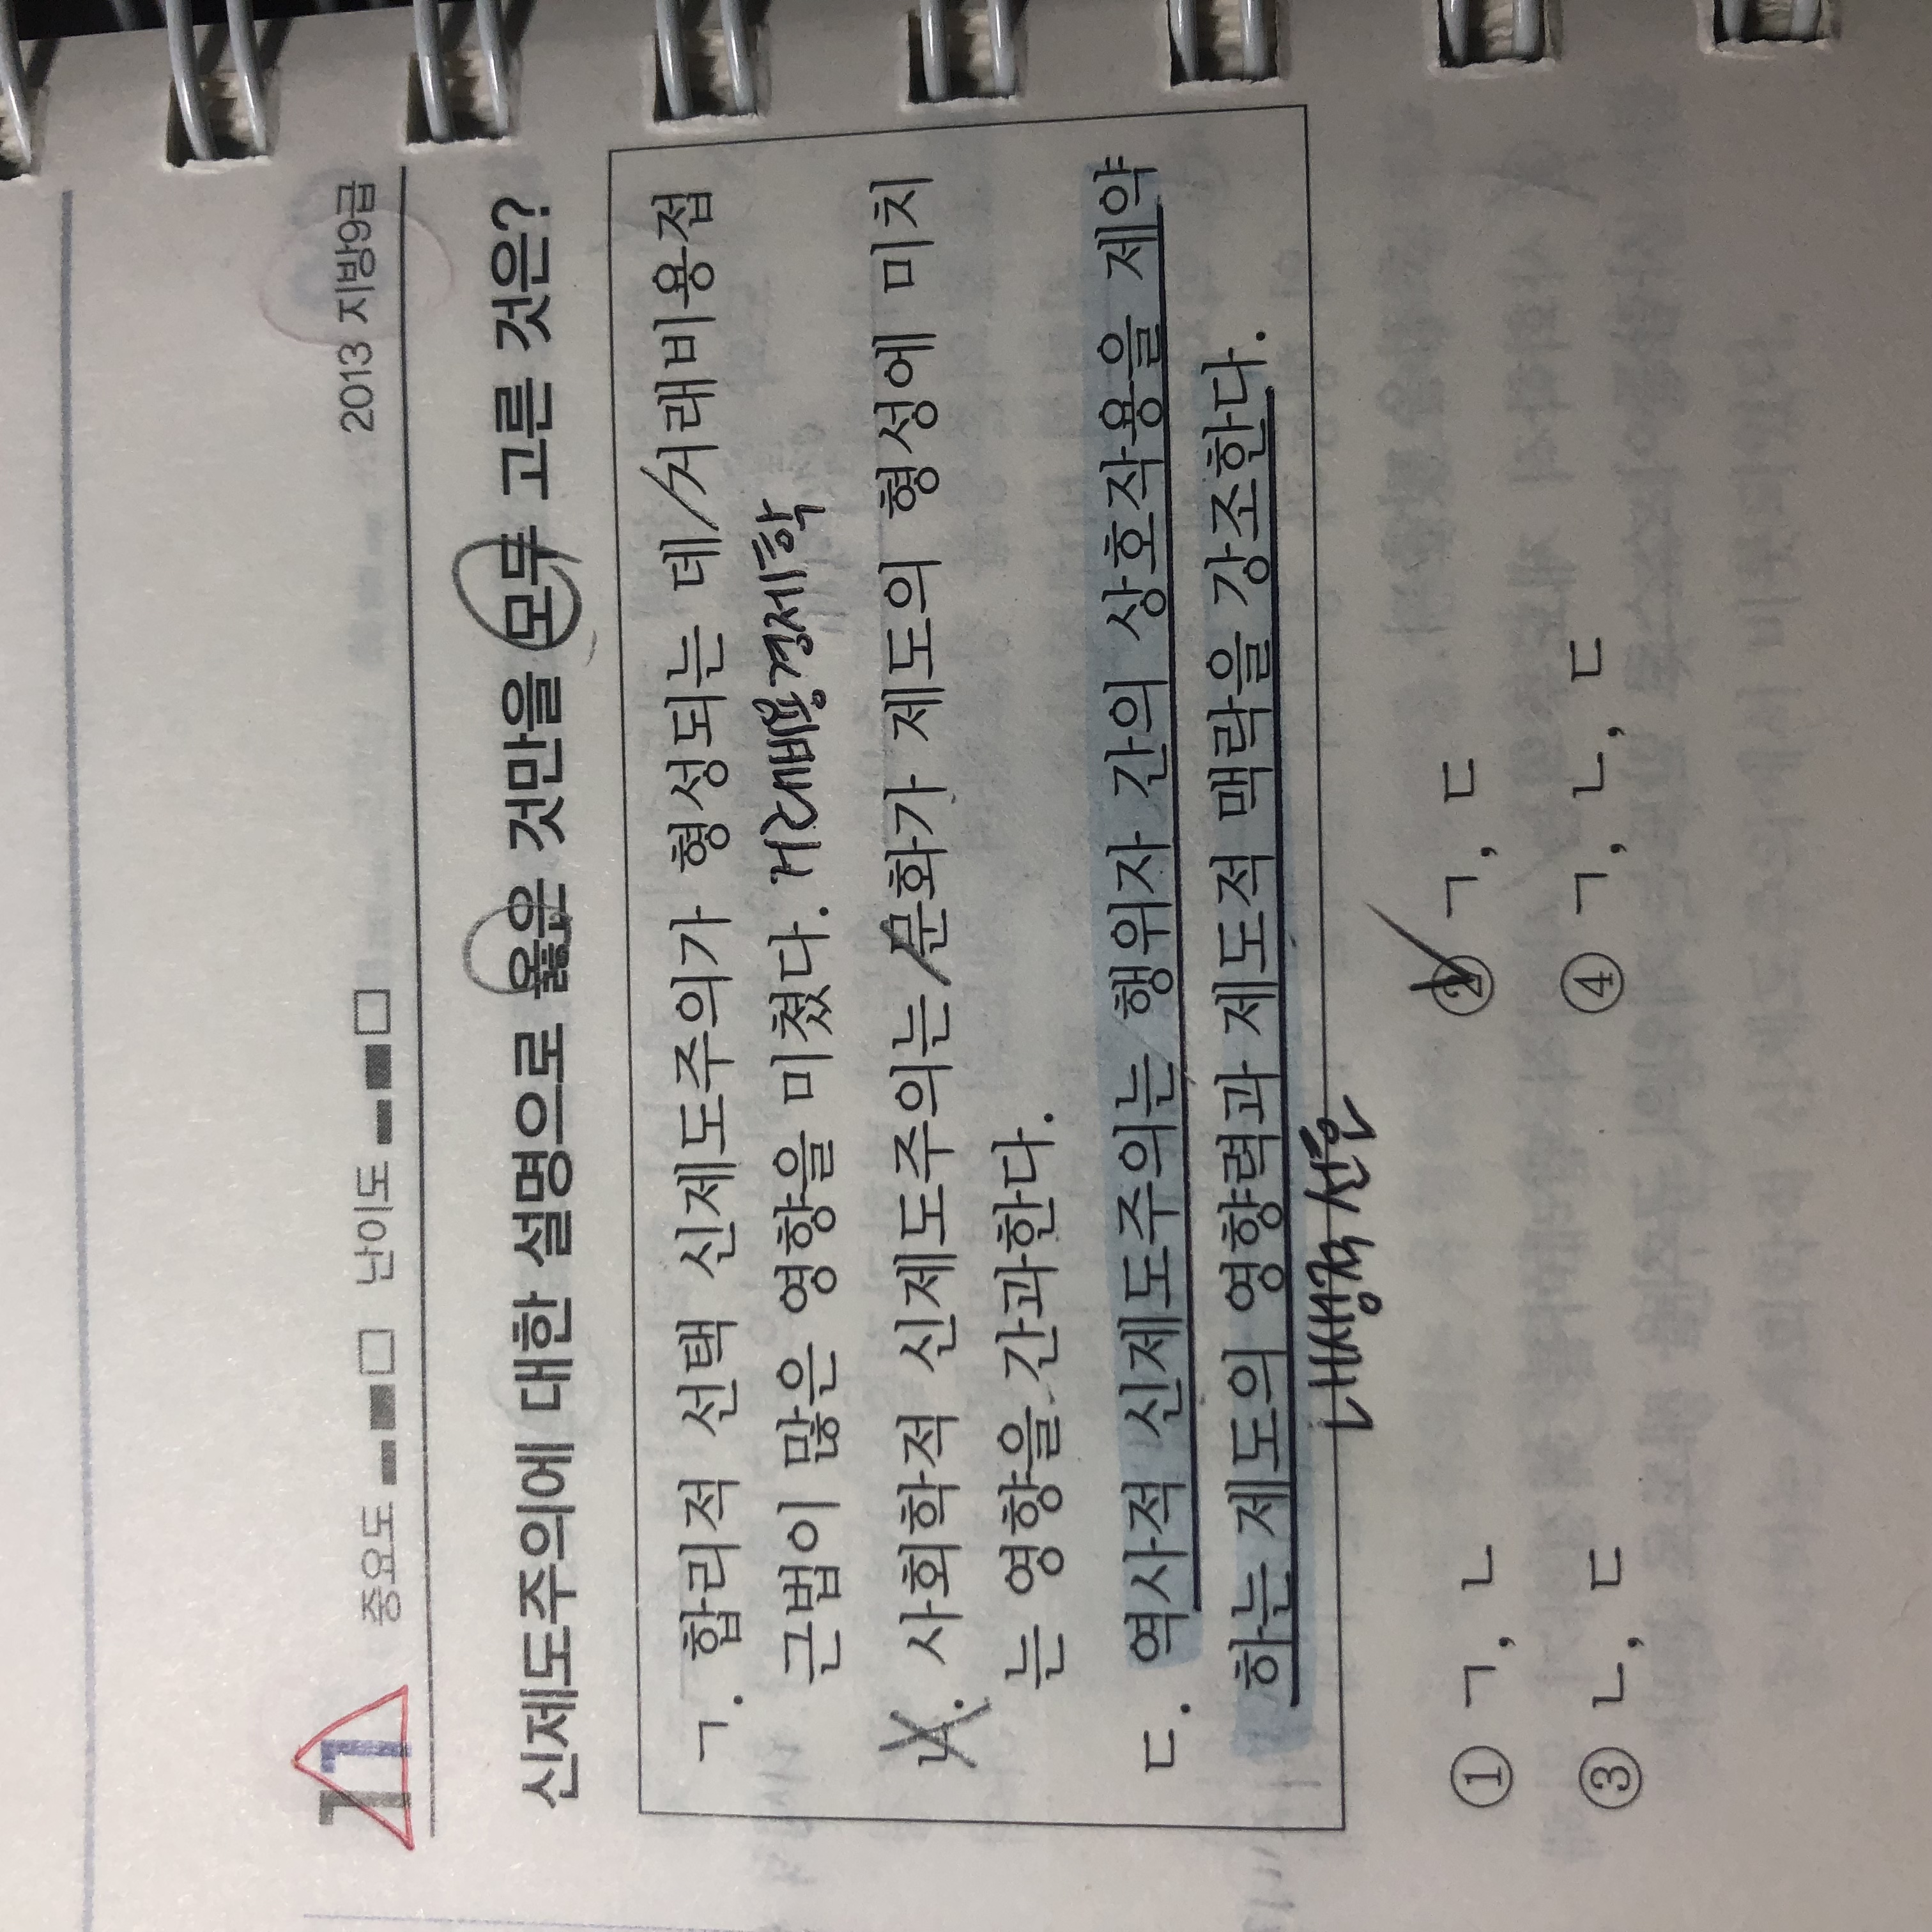 11 중요도 난이도 2013 지방9급
신제도주의에 대한 설명으로 옳은 것만을 모두 고른 것은?
ㄱ. 합리적 선택 신제도주의가 형성되는 데 거래비용접
근법이 많은 영향을 미쳤다. 거래비용경제학
ㄴ. 사회학적 신제도주의는 문화가 제도의 형성에 미치
는 영향을 간과한다.
ㄷ. 역사적 신제도주의는 행위자 간의 상호작용을 제약
하는 제도의 영향력과 제도적 맥락을 강조한다.
내생적 선호
① ㄱ, ㄴ ② ㄱ, ㄷ
③ ㄴ, ㄷ ④ ㄱ, ㄴ, ㄷ